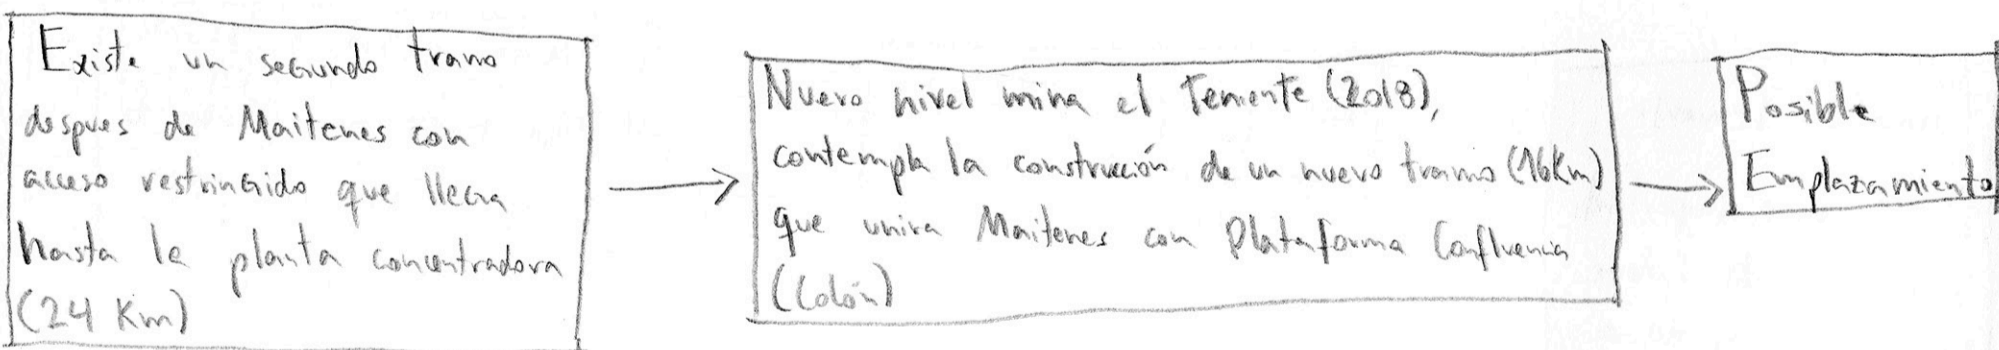 Existe un segundo tramo
despues de Maitenes con
acceso restringido que llega
hasta la planta concentradora
(24 Km)
Nuevo nivel mina el Teniente (2018),
contempla la construcción de un nuevo tramo (16Km)
que unira Maitenes con Plataforma Confluencia
(Colón)
Posible
Emplazamiento